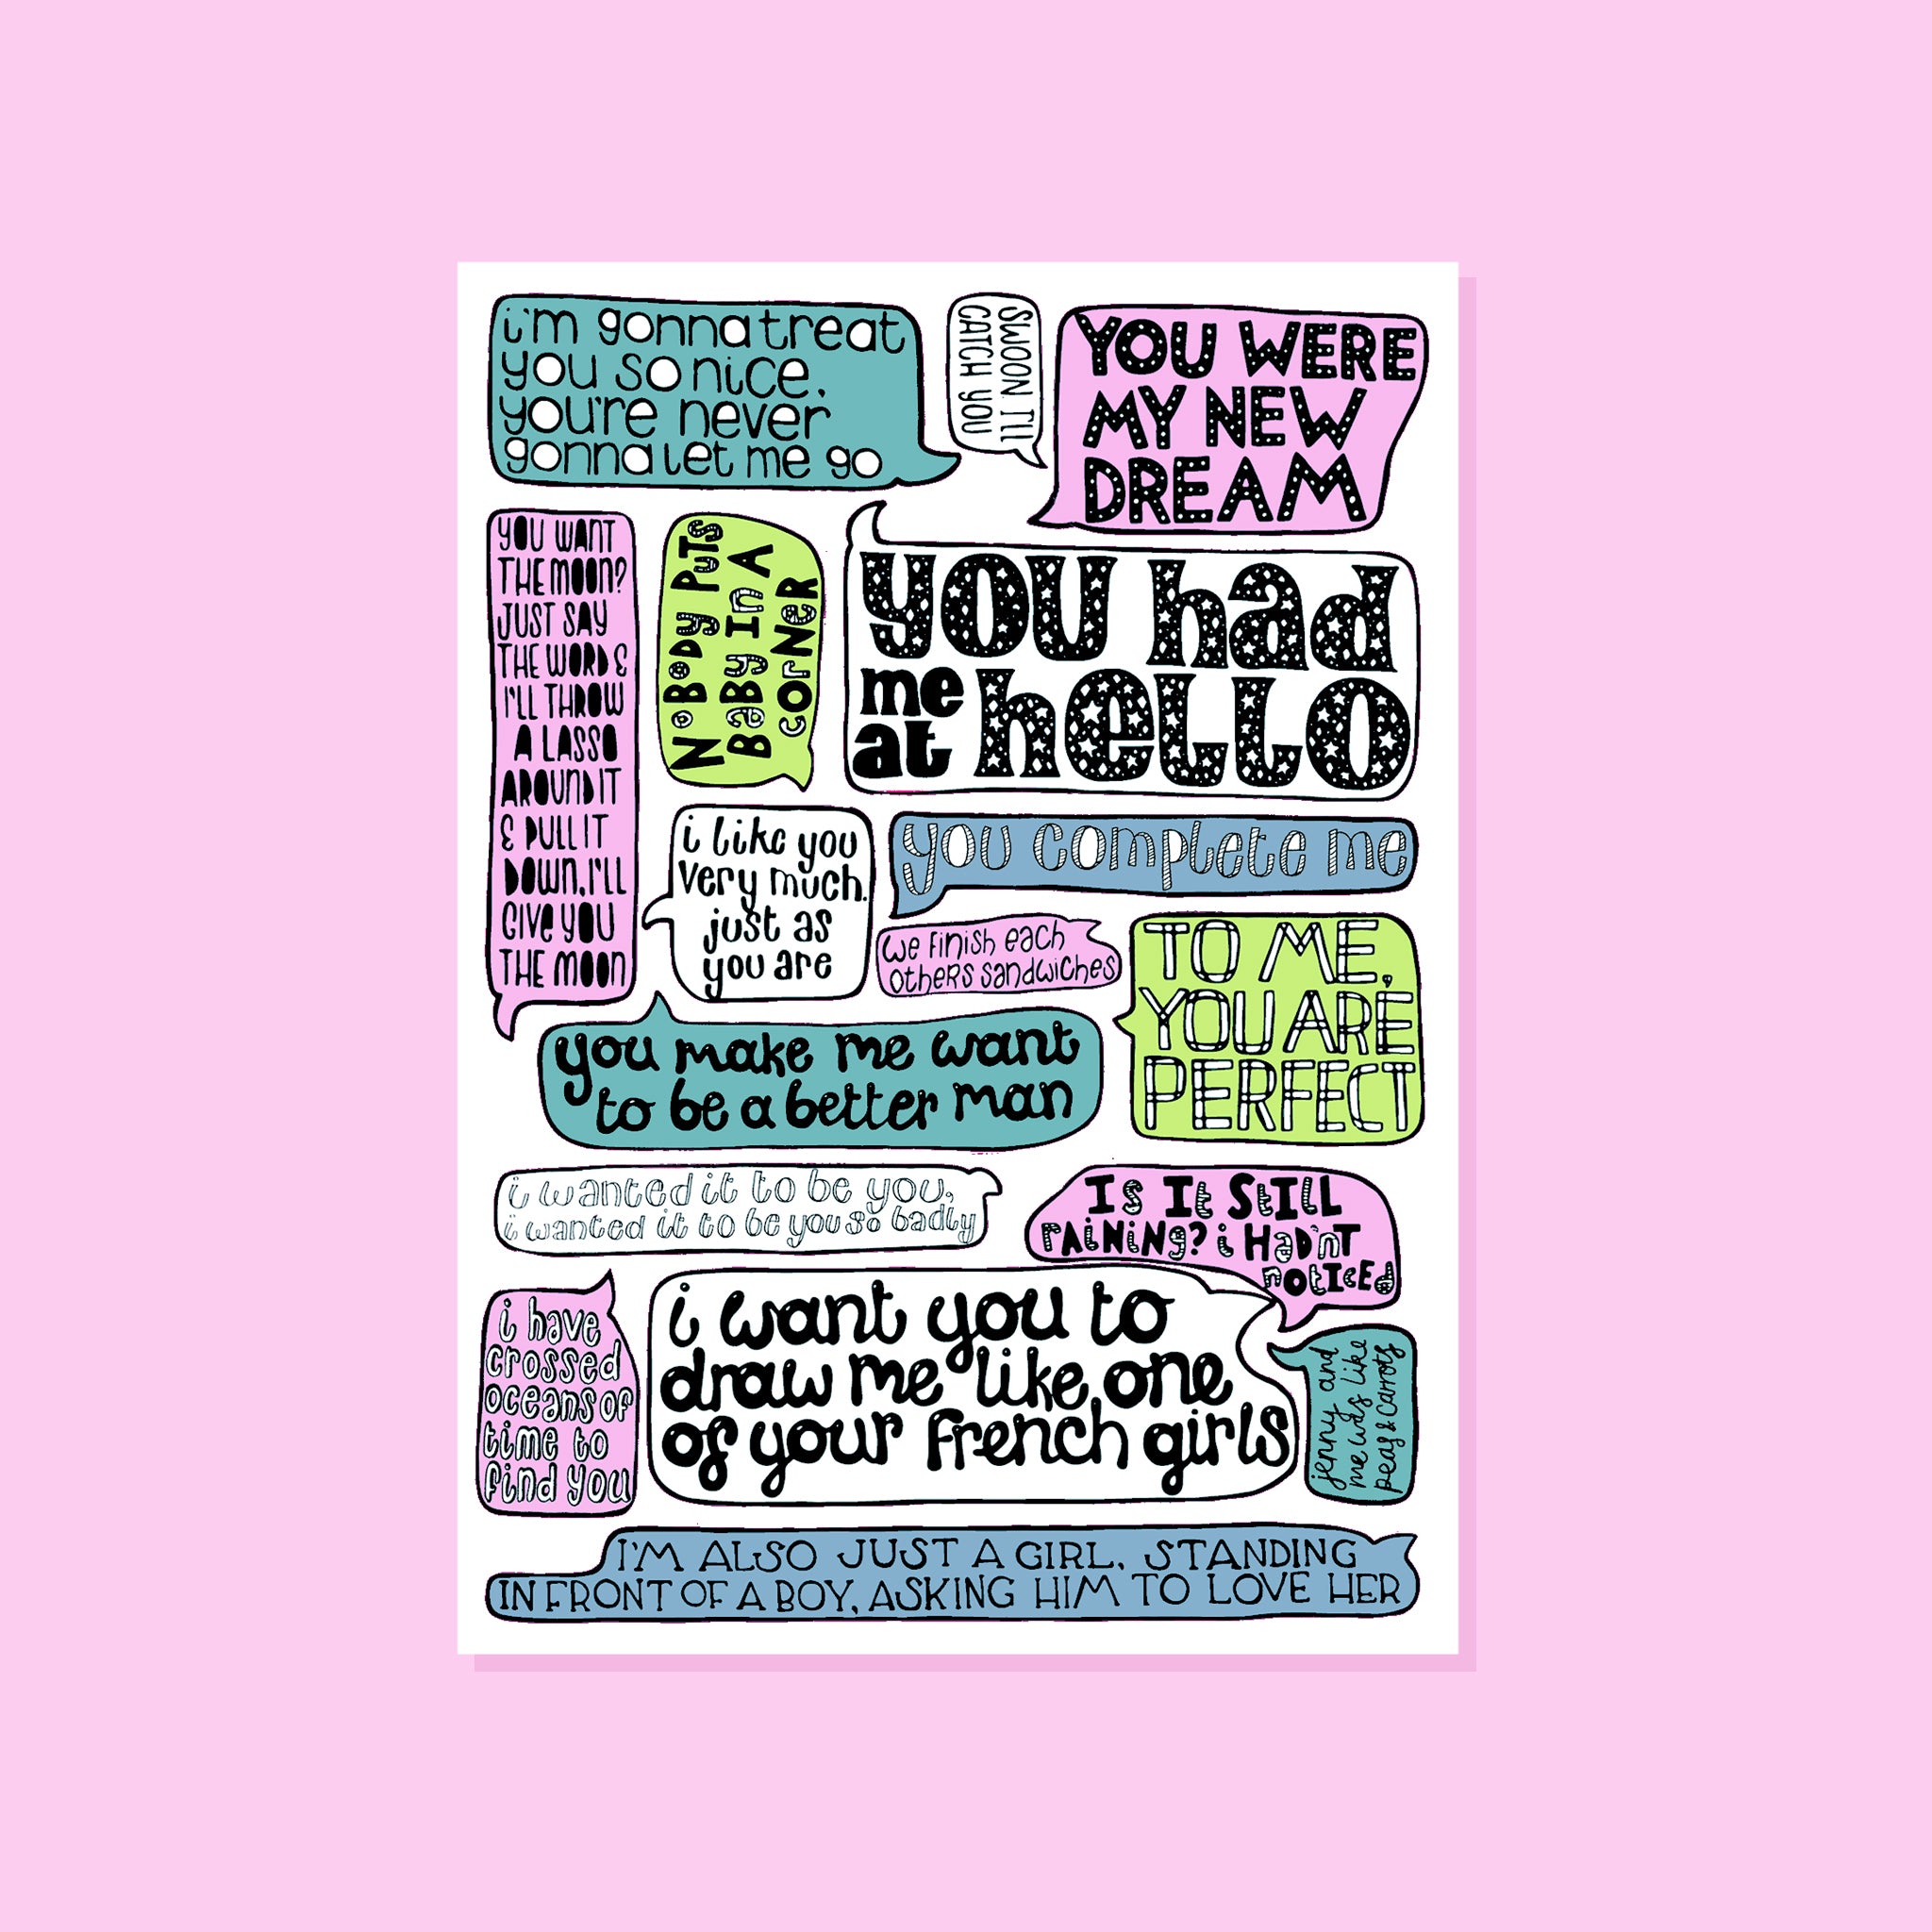 i'm gonna treat
you so nice,
you're never
gonna let me go
SWOON. I'll
CATCH YOU
YOU WERE
MY NEW
DREAM
YOU WANT
THE MOON?
JUST SAY
THE WORD &
I'LL THROW
A LASSO
AROUND IT
& PULL IT
DOWN, I'LL
GIVE YOU
THE MOON
NoBody PUTS
BaBy In A
corNer
you had
me at hello
i like you
very much.
just as
you are
you complete me
we finish each
others sandwiches
TO ME,
YOU ARE
PERFECT
you make me want
to be a better man
i wanted it to be you,
i wanted it to be you so badly
Is It StILL
rAiNiNg? i Had'nT
noticed
i have
crossed
oceans of
time to
find you
i want you to
draw me like one
of your french girls
jenny and
me was like
peas & carrots
I'M ALSO JUST A GIRL, STANDING
IN FRONT OF A BOY, ASKING HIM TO LOVE HER